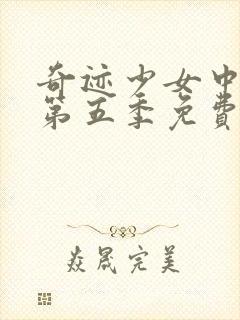 奇迹少女中
第五季免費
焱晟完美